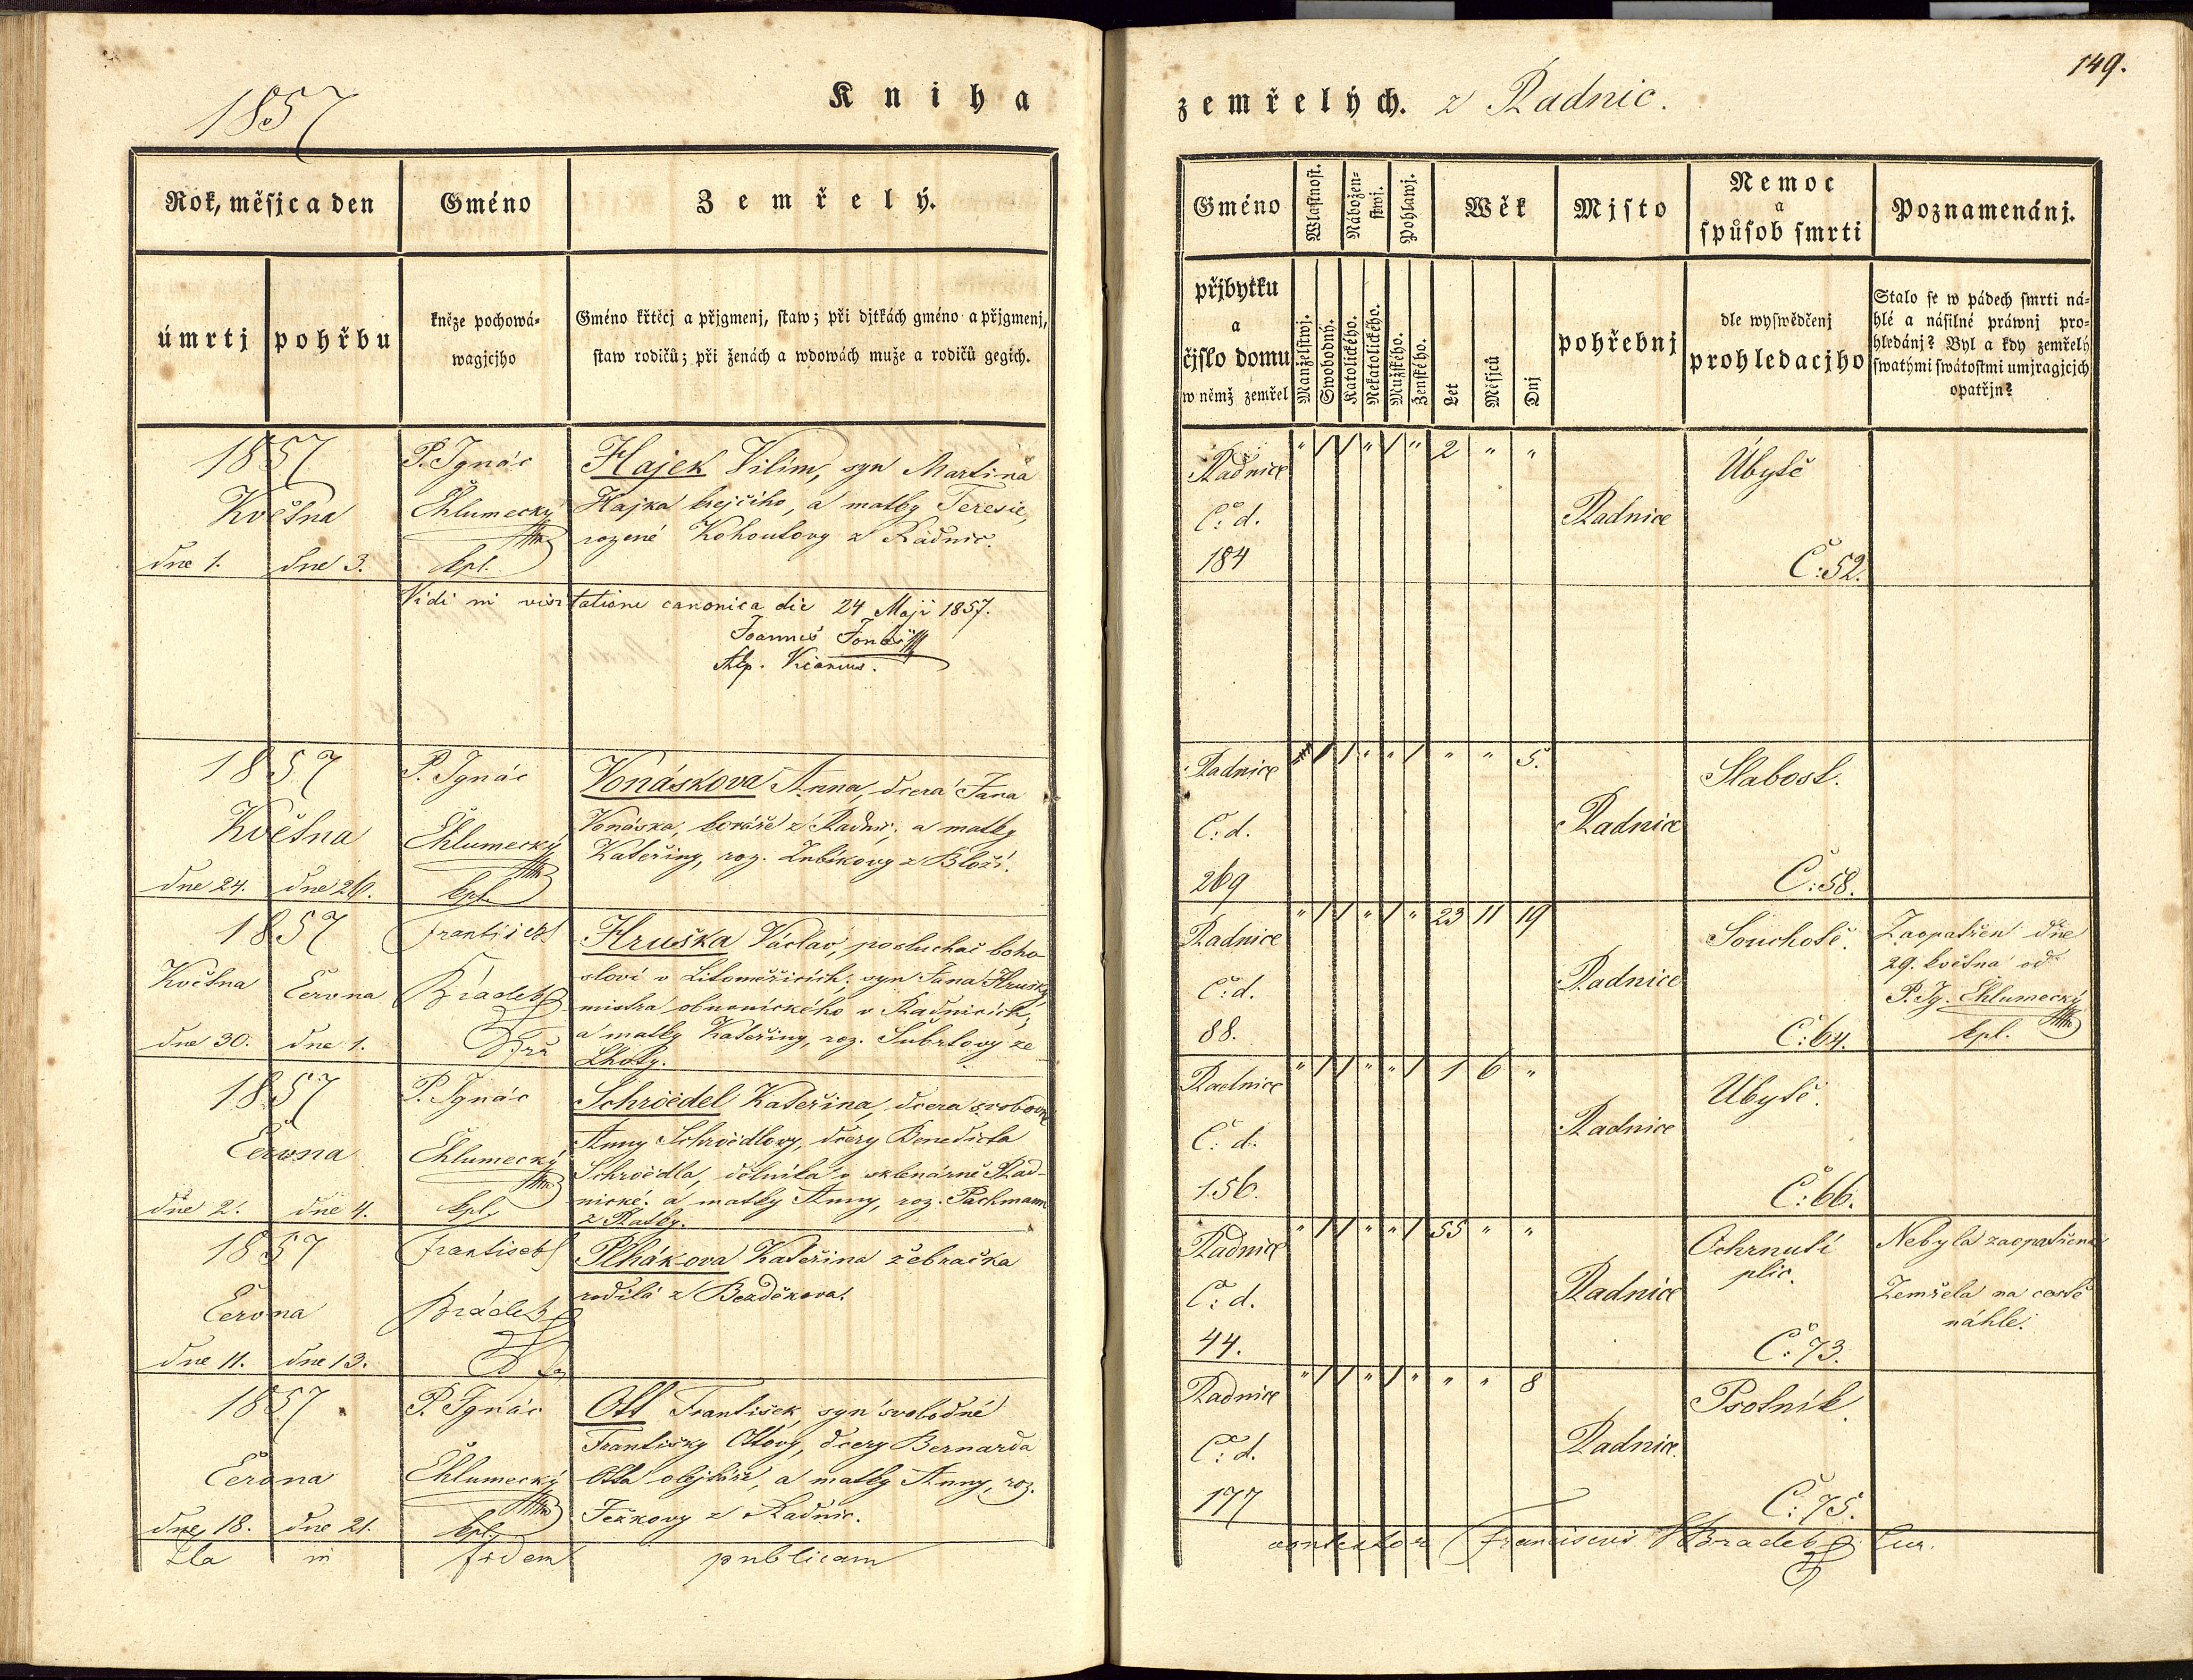 1857
Kniha
zemřelých. z Radnic.
149.
Rok, měsjc a den
Gméno
Zemřelý.
úmrtj
pohřbu
kněze pochowá-
wagjcjho
Gméno křtěcj a přjgmenj, staw; při djtkách gméno a přjgmenj,
staw rodičů; při ženách a wdowách muže a rodičů gegich.
Gméno
Wlastnost.
Nábožen-
stwj.
Pohlawj.
Wěk
Mjsto
Nemoc
a
spůsob smrti
Poznamenánj.
přjbytku
a
čjslo domu
w němž zemřel
Manželstwj.
Swobodný.
Katolického.
Nekatolického.
Mužského.
Ženského.
Let
Měsjců
Dnj
pohřebnj
dle wyswědčenj
prohledacjho
Stalo se w pádech smrti ná-
hlé a násilné práwnj pro-
hledánj? Byl a kdy zemřelý
swatými swátostmi umjragjcjch
opatřjn?
1857
Května
dne 1. dne 3.
P. Ignác
Chlumecký
kpl.
Hajek Vilim, syn Martina
Hajka krejčího, a matky Teresie,
rozené Kohoutovy z Radnic.
Radnice
Č: d.
184
" / / " / " 2 " "
Radnice
Úbytě
Č: 52.
Vidi in visitatione canonica die 24 Maji 1857.
Joannes
1857
Května
dne 24. dne 26.
P. Ignác
Chlumecký
kpl.
Vonáskova Anna, dcera Jana
Vonáska, kováře z Radnic, a matky
Kateřiny, roz. Zubíkovy z
Radnice
Č: d.
269
/ / " " / " " 5.
Radnice
Slabost.
Č: 58.
1857
Května Června
dne 30. dne 1.
František
Hrádek
Hruška Václav, posluchač boho-
sloví v Litoměřicích; syn Jana Hrušky,
mistra obuvnického v Radnicích,
a matky Kateřiny, roz. Šubrtovy ze
Lhoty.
Radnice
Č: d.
88.
" / / " / " 23 11 19
Radnice
Souchotě.
Č: 64.
Zaopatřen dne
29. května od
P. Ig. Chlumecký
kpl.
1857
Června
dne 2. dne 4.
P. Ignác
Chlumecký
kpl.
Schröedel Kateřina, dcera svobodné
Anny Schröedlovy, dcery Benedicta
Schröedla, dělníka v sklenárně Rad-
nické. a matky Anny, roz. Pachmann
Radnice
Č: d.
156.
" / / " " / 1 6 "
Radnice
Ubytě.
Č: 66.
1857
Června
dne 11. dne 13.
František
Hrádek
Plhákova Kateřina žebračka
rodilá z Bezděkova.
Radnice
Č: d.
44.
" / / " " / 55 " "
Radnice
Ochrnutí
plic.
Č: 73.
Nebyla zaopatřena
Zemřela na cestě
náhle.
1857
Června
dne 18. dne 21.
P. Ignác
Chlumecký
kpl.
Ott František, syn svobodné
Františky Ottovy, dcery Bernarda
Otta olejkáře, a matky Anny, roz.
Ježkovy z Radnic.
Radnice
Č: d.
177
" / / " / " " " 8
Radnice
Psotník.
Č: 75.
Ita in fidem publicam
contextor Franciscus Hradek Cur.